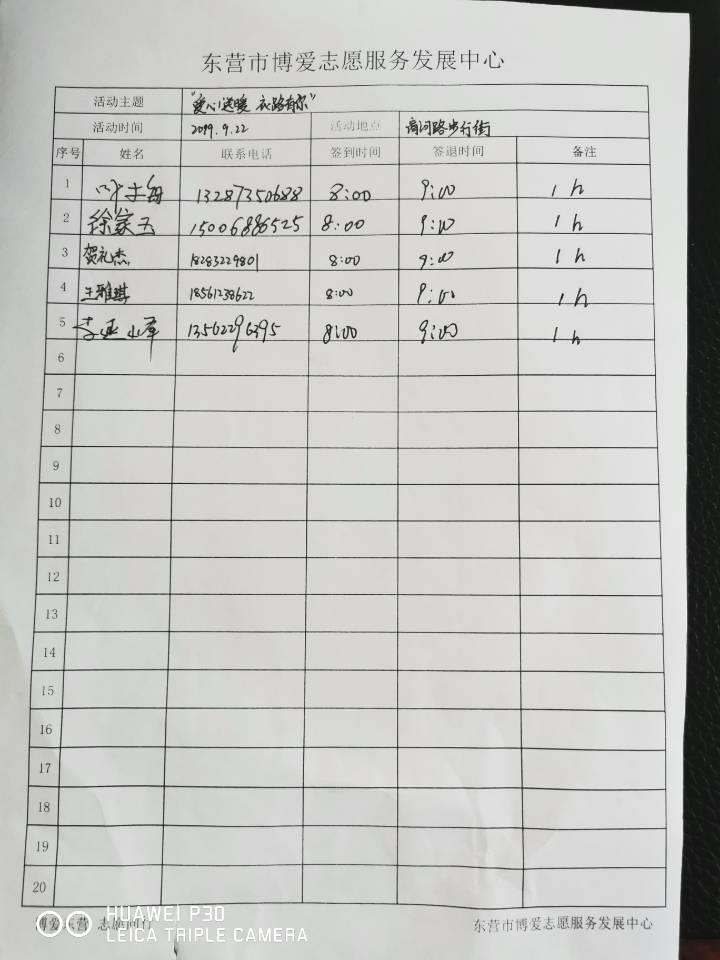 东营市博爱志愿服务发展中心
活动主题 "爱心送暖 衣路有你"
活动时间 2019.9.22 活动地点 商河路步行街
序号 姓名 联系电话 签到时间 签退时间 备注
1 13287350688 8:00 9:00 1h
2 徐家玉 15006886525 8:00 9:00 1h
3 贺礼杰 18283229801 8:00 9:00 1h
4 王雅琪 18561238622 8:00 9:00 1h
5 13562296395 8:00 9:00 1h
6
7
8
9
10
11
12
13
14
15
16
17
18
19
20
博爱东营 志愿同行 东营市博爱志愿服务发展中心
HUAWEI P30
LEICA TRIPLE CAMERA